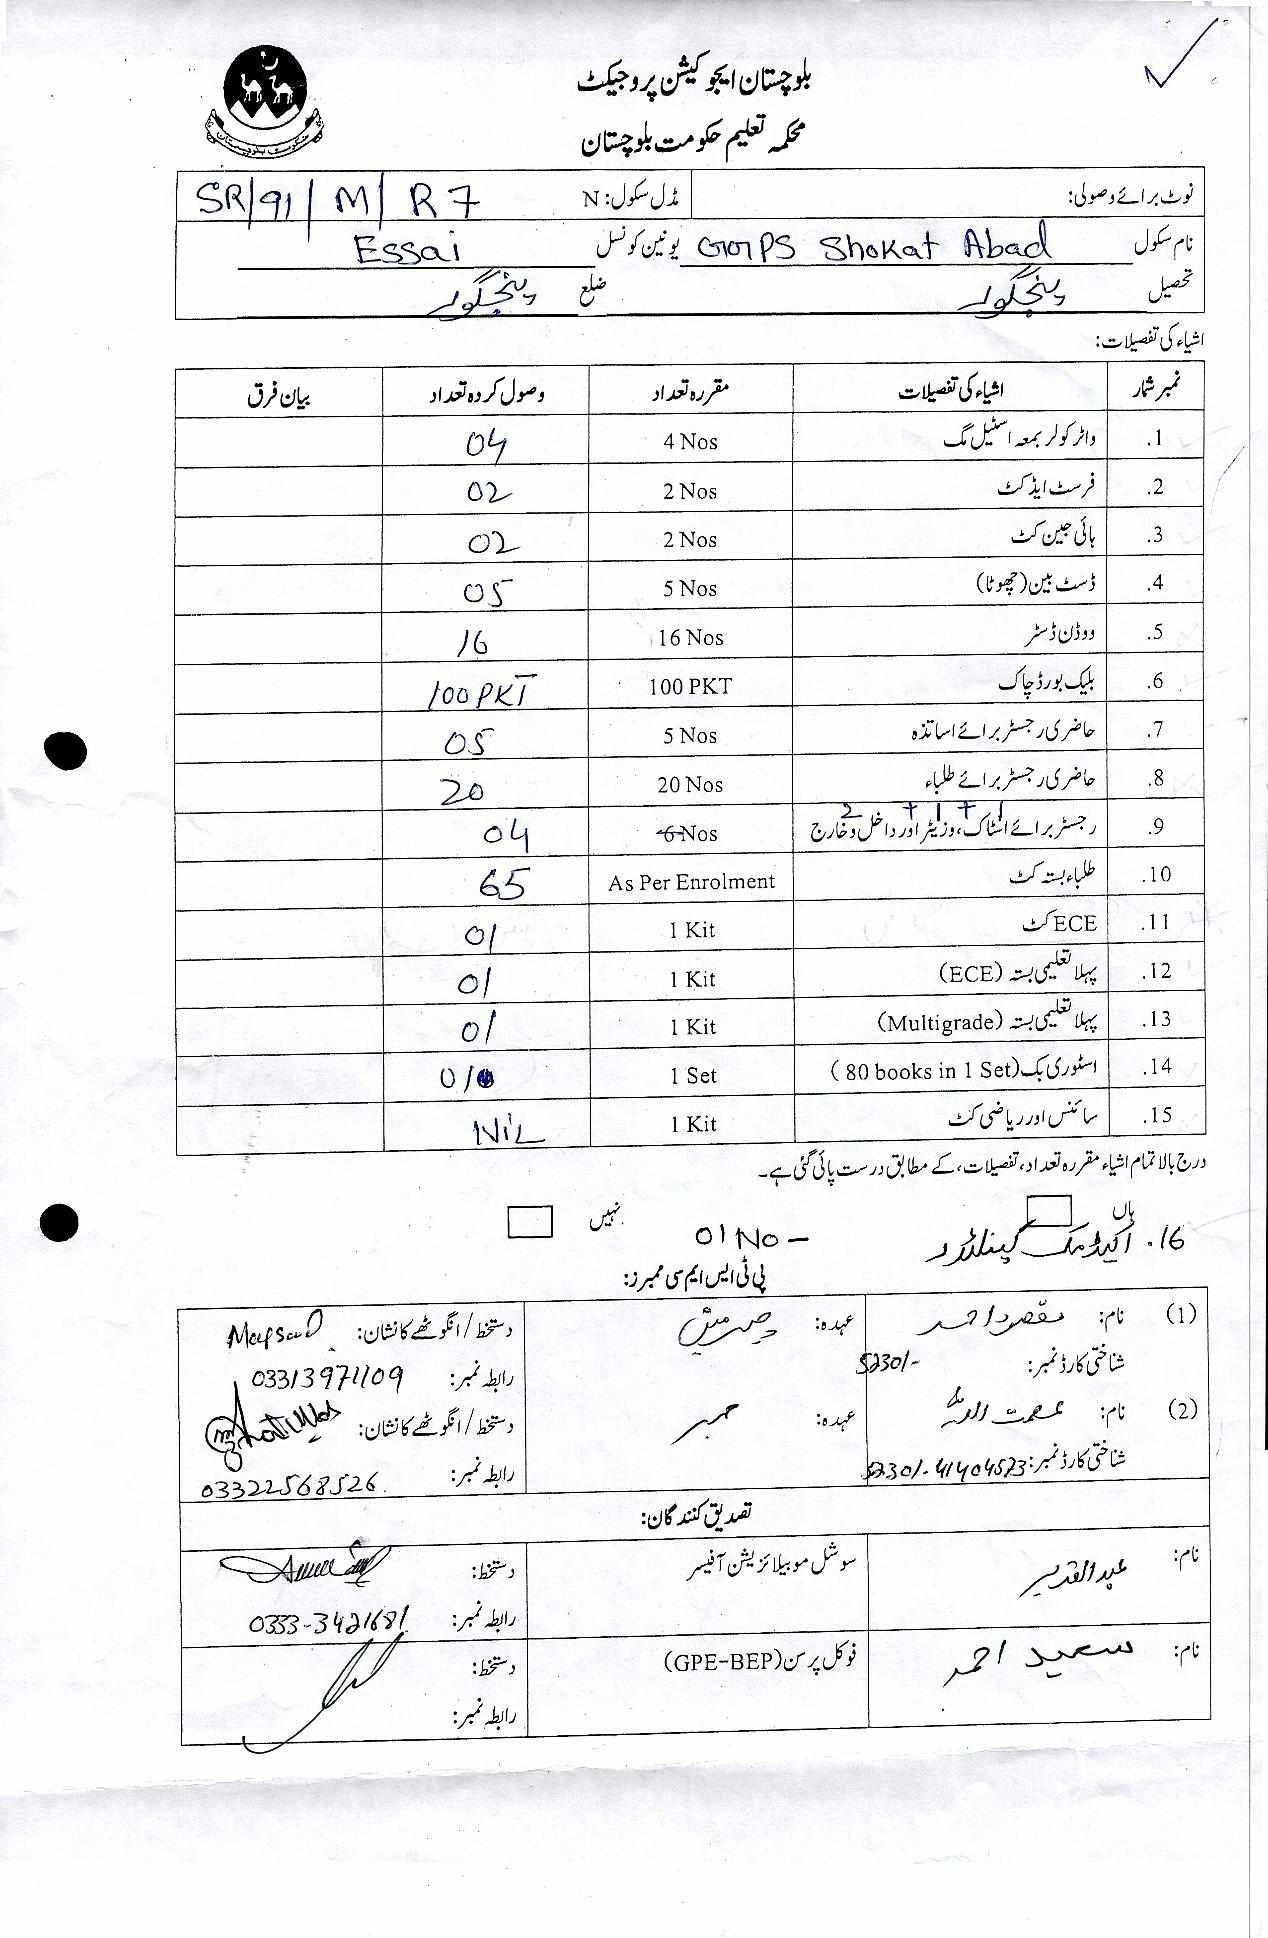 بلوچستان ایجوکیشن پروجیکٹ
محکمہ تعلیم حکومت بلوچستان
حکومت بلوچستان
نوٹ برائے وصولی: مڈل سکول: N SR/91/M/R7
نام سکول GGPS Shokat Abad یونین کونسل Essai
تحصیل پنجگور ضلع پنجگور
اشیاء کی تفصیلات:
نمبر شمار اشیاء کی تفصیلات مقررہ تعداد وصول کردہ تعداد بیان فرق
1. واٹر کولر بمعہ اسٹیل مگ 4 Nos 04
2. فرسٹ ایڈ کٹ 2 Nos 02
3. ہائی جین کٹ 2 Nos 02
4. ڈسٹ بین (چھوٹا) 5 Nos 05
5. ووڈن ڈسٹر 16 Nos 16
6. بلیک بورڈ چاک 100 PKT 100 PKT
7. حاضری رجسٹر برائے اساتذہ 5 Nos 05
8. حاضری رجسٹر برائے طلباء 20 Nos 20
1 + 1 + 2
9. رجسٹر برائے اسٹاک، وزیٹر اور داخل و خارج 6 Nos 04
10. طلباء بستہ کٹ As Per Enrolment 65
11. ECE کٹ 1 Kit 01
12. پہلا تعلیمی بستہ (ECE) 1 Kit 01
13. پہلا تعلیمی بستہ (Multigrade) 1 Kit 01
14. اسٹوری بک (80 books in 1 Set) 1 Set 01
15. سائنس اور ریاضی کٹ 1 Kit NiL
درج بالا تمام اشیاء مقررہ تعداد، تفصیلات، کے مطابق درست پائی گئی ہے۔
ہاں نہیں
16. اکیڈمک کیلنڈر 01 No -
پی ٹی ایس ایم سی ممبرز:
(1) نام: مقصود احمد عہدہ: چیرمین دستخط / انگوٹھے کا نشان: Maqsood
شناختی کارڈ نمبر: 52301- رابطہ نمبر: 03313971109
(2) نام: عصمت اللہ عہدہ: ممبر دستخط / انگوٹھے کا نشان:
شناختی کارڈ نمبر: 52301-41404573 رابطہ نمبر: 03322568526
تصدیق کنندگان:
نام: عبدالقدیر سوشل موبیلائزیشن آفیسر دستخط:
رابطہ نمبر: 0333-3421681
نام: سعید احمد فوکل پرسن (GPE-BEP) دستخط:
رابطہ نمبر: